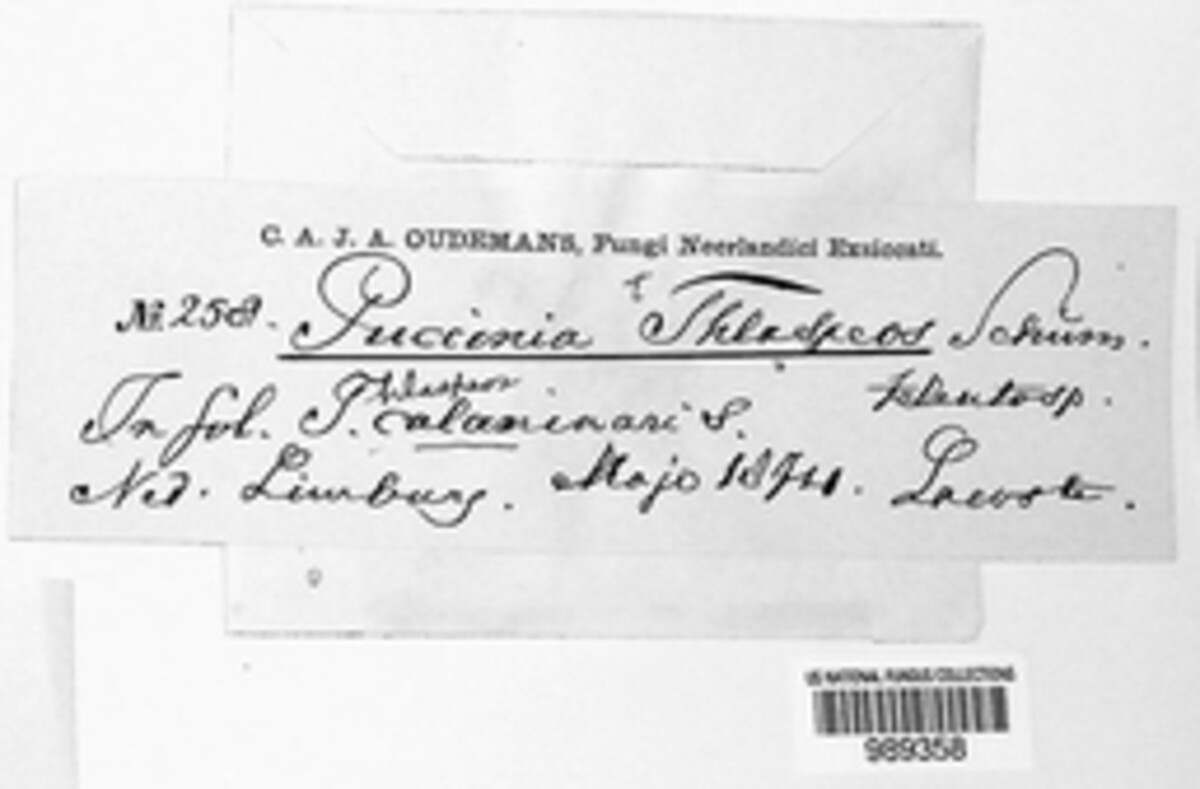 C. A. J. A. OUDEMANS, Fungi Neerlandici Exsiccati.
№ 258. Puccinia Thlaspeos Schum.
In fol. T. calaminaris.
Ned. Limburg. Majo 1874. Lacoste.
US NATIONAL FUNGUS COLLECTIONS
989358